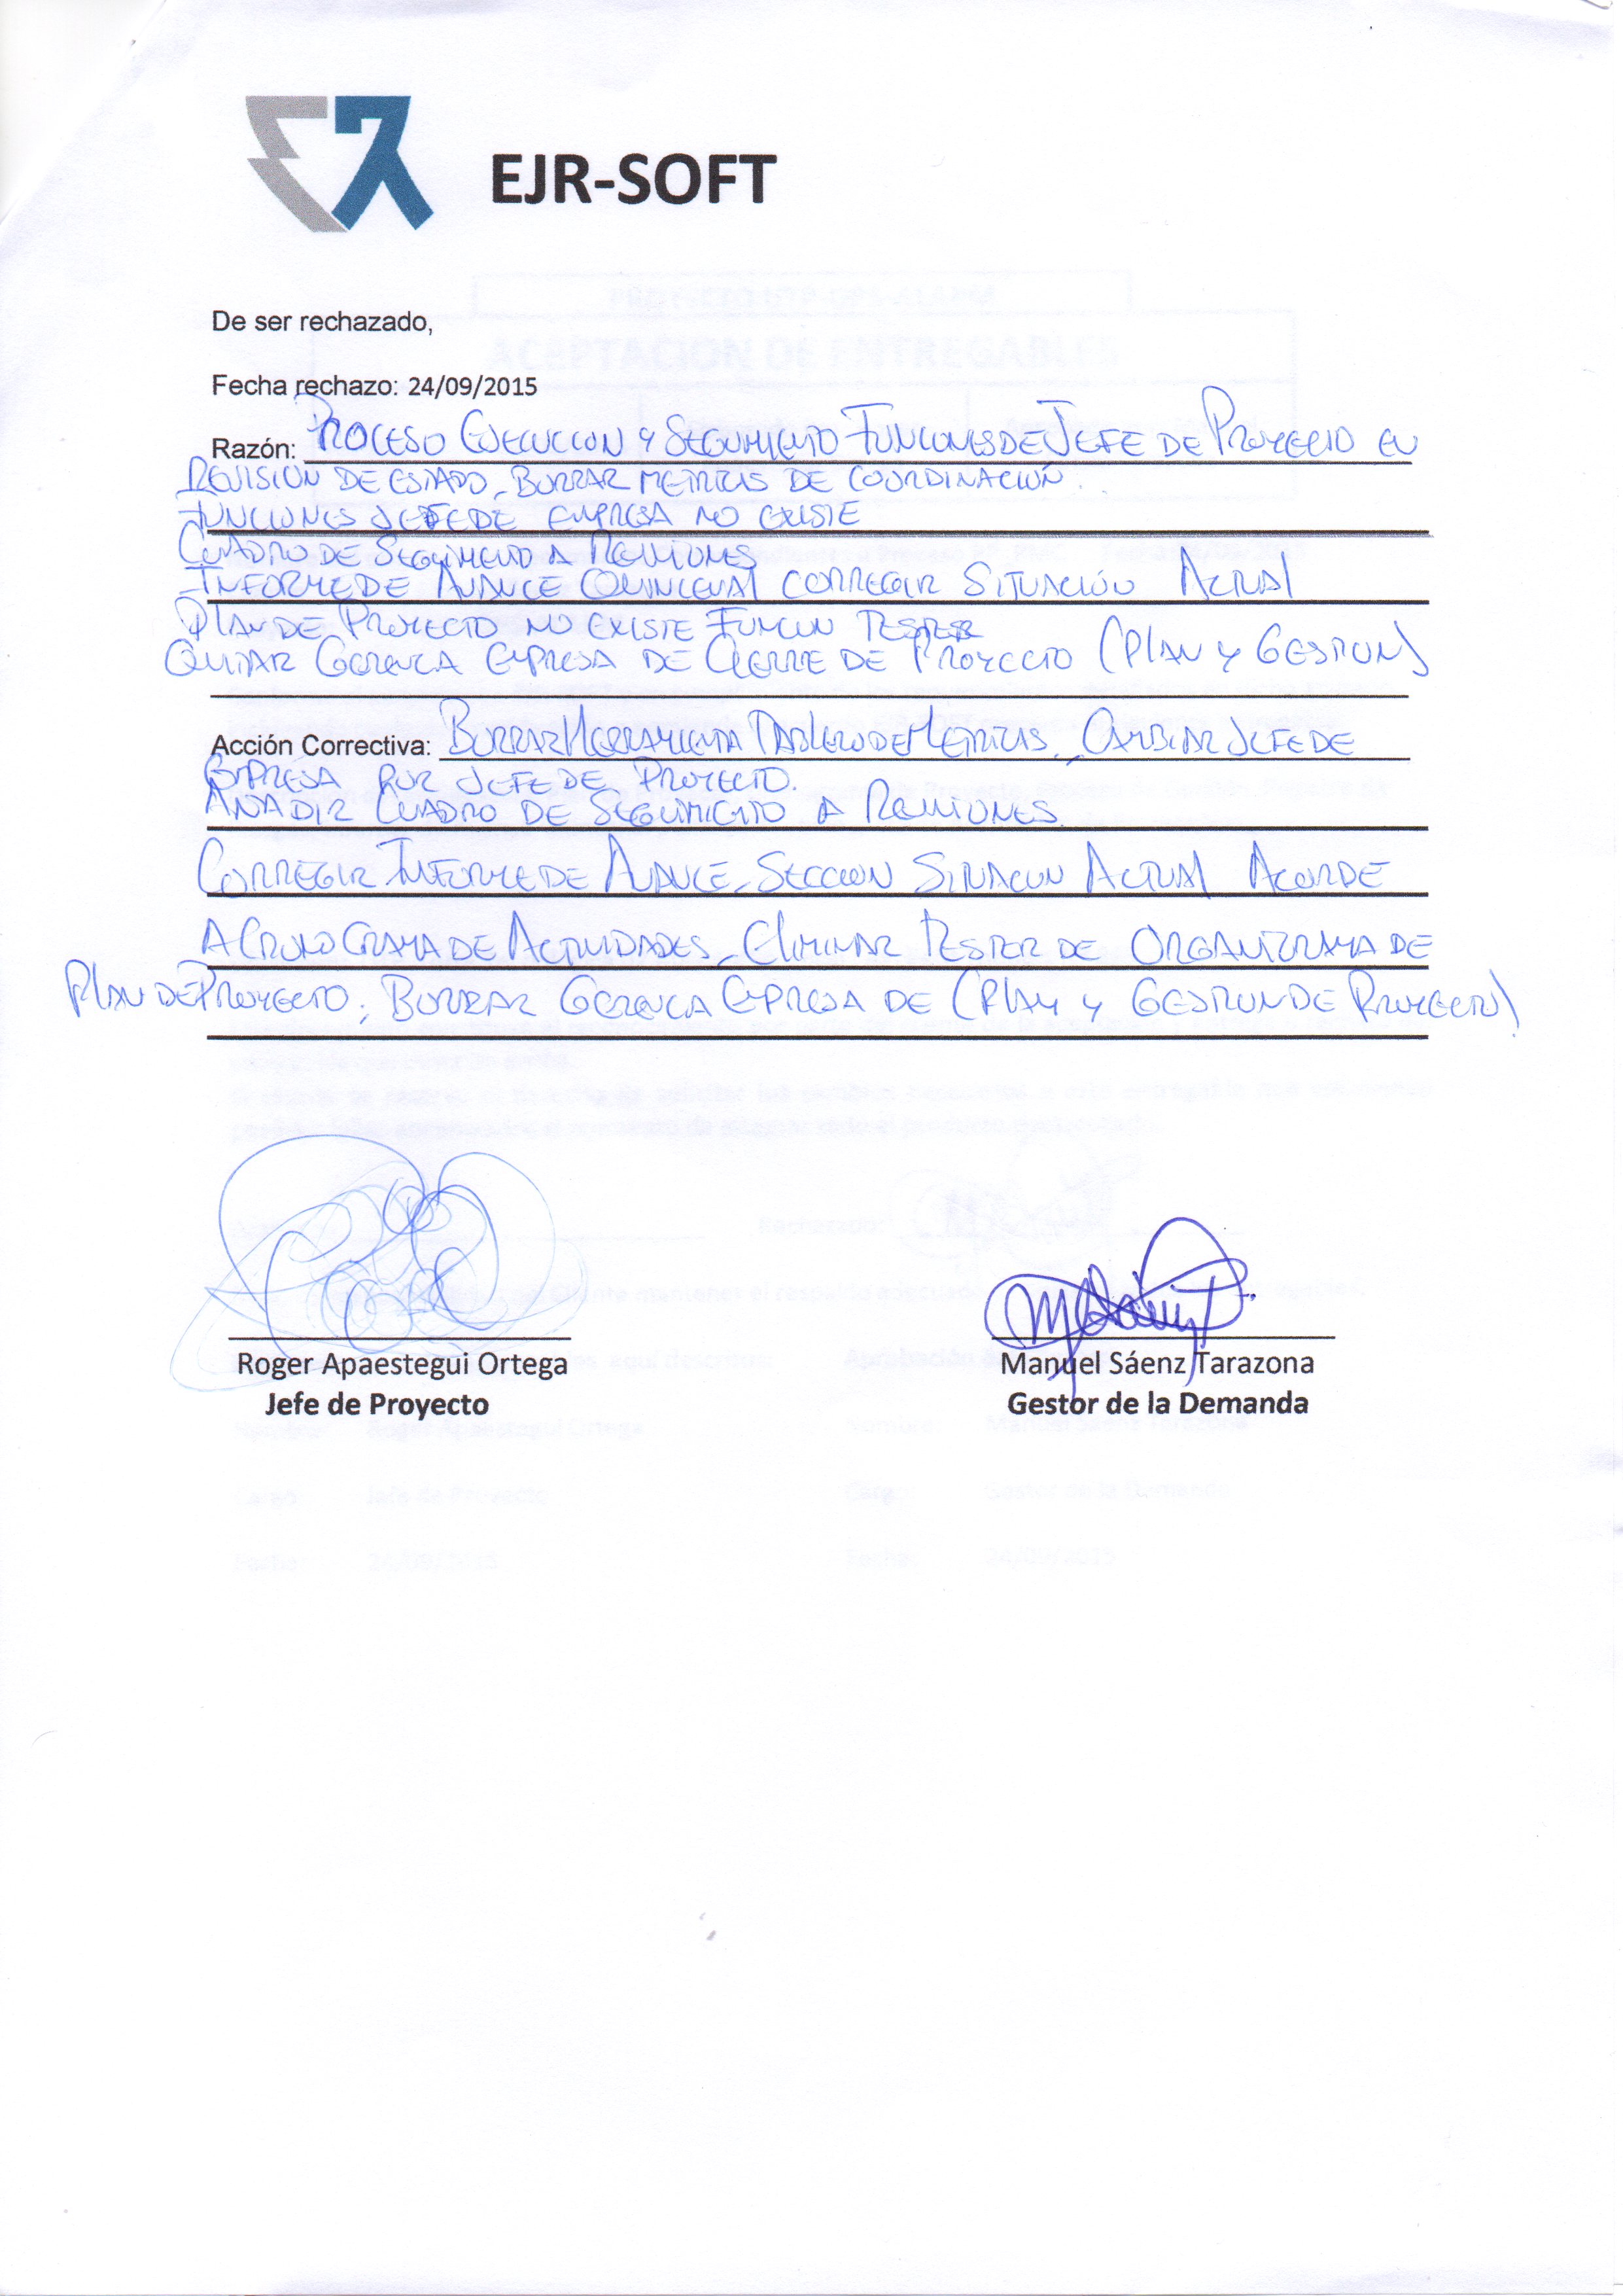 EJR-SOFT
De ser rechazado,
Fecha rechazo: 24/09/2015
Razón: PROCESO EJECUCCION Y SEGUIMIENTO FUNCIONES DE JEFE DE PROYECTO EN
REVISION DE ESTADO, BORRAR METRICAS DE COORDINACIÓN.
FUNCIONES JEFE DE EMPRESA NO EXISTE
CUADRO DE SEGUIMIENTO A REUNIONES
INFORME DE AVANCE QUINCENAL CORREGIR SITUACIÓN ACTUAL
PLAN DE PROYECTO NO EXISTE FUNCION TESTER
QUITAR GERENCIA EMPRESA DE CIERRE DE PROYECTO (PLAN Y GESTION)
Acción Correctiva: BORRAR HERRAMIENTA TABLERO DE METRICAS, CAMBIAR JEFE DE
EMPRESA POR JEFE DE PROYECTO.
AÑADIR CUADRO DE SEGUIMIENTO A REUNIONES.
CORREGIR INFORME DE AVANCE, SECCION SITUACION ACTUAL ACORDE
A CRONOGRAMA DE ACTIVIDADES, ELIMINAR TESTER DE ORGANIGRAMA DE
PLAN DE PROYECTO, BORRAR GERENCIA EMPRESA DE (PLAN Y GESTION DE PROYECTO)
Roger Apaestegui Ortega
Jefe de Proyecto
Manuel Sáenz Tarazona
Gestor de la Demanda